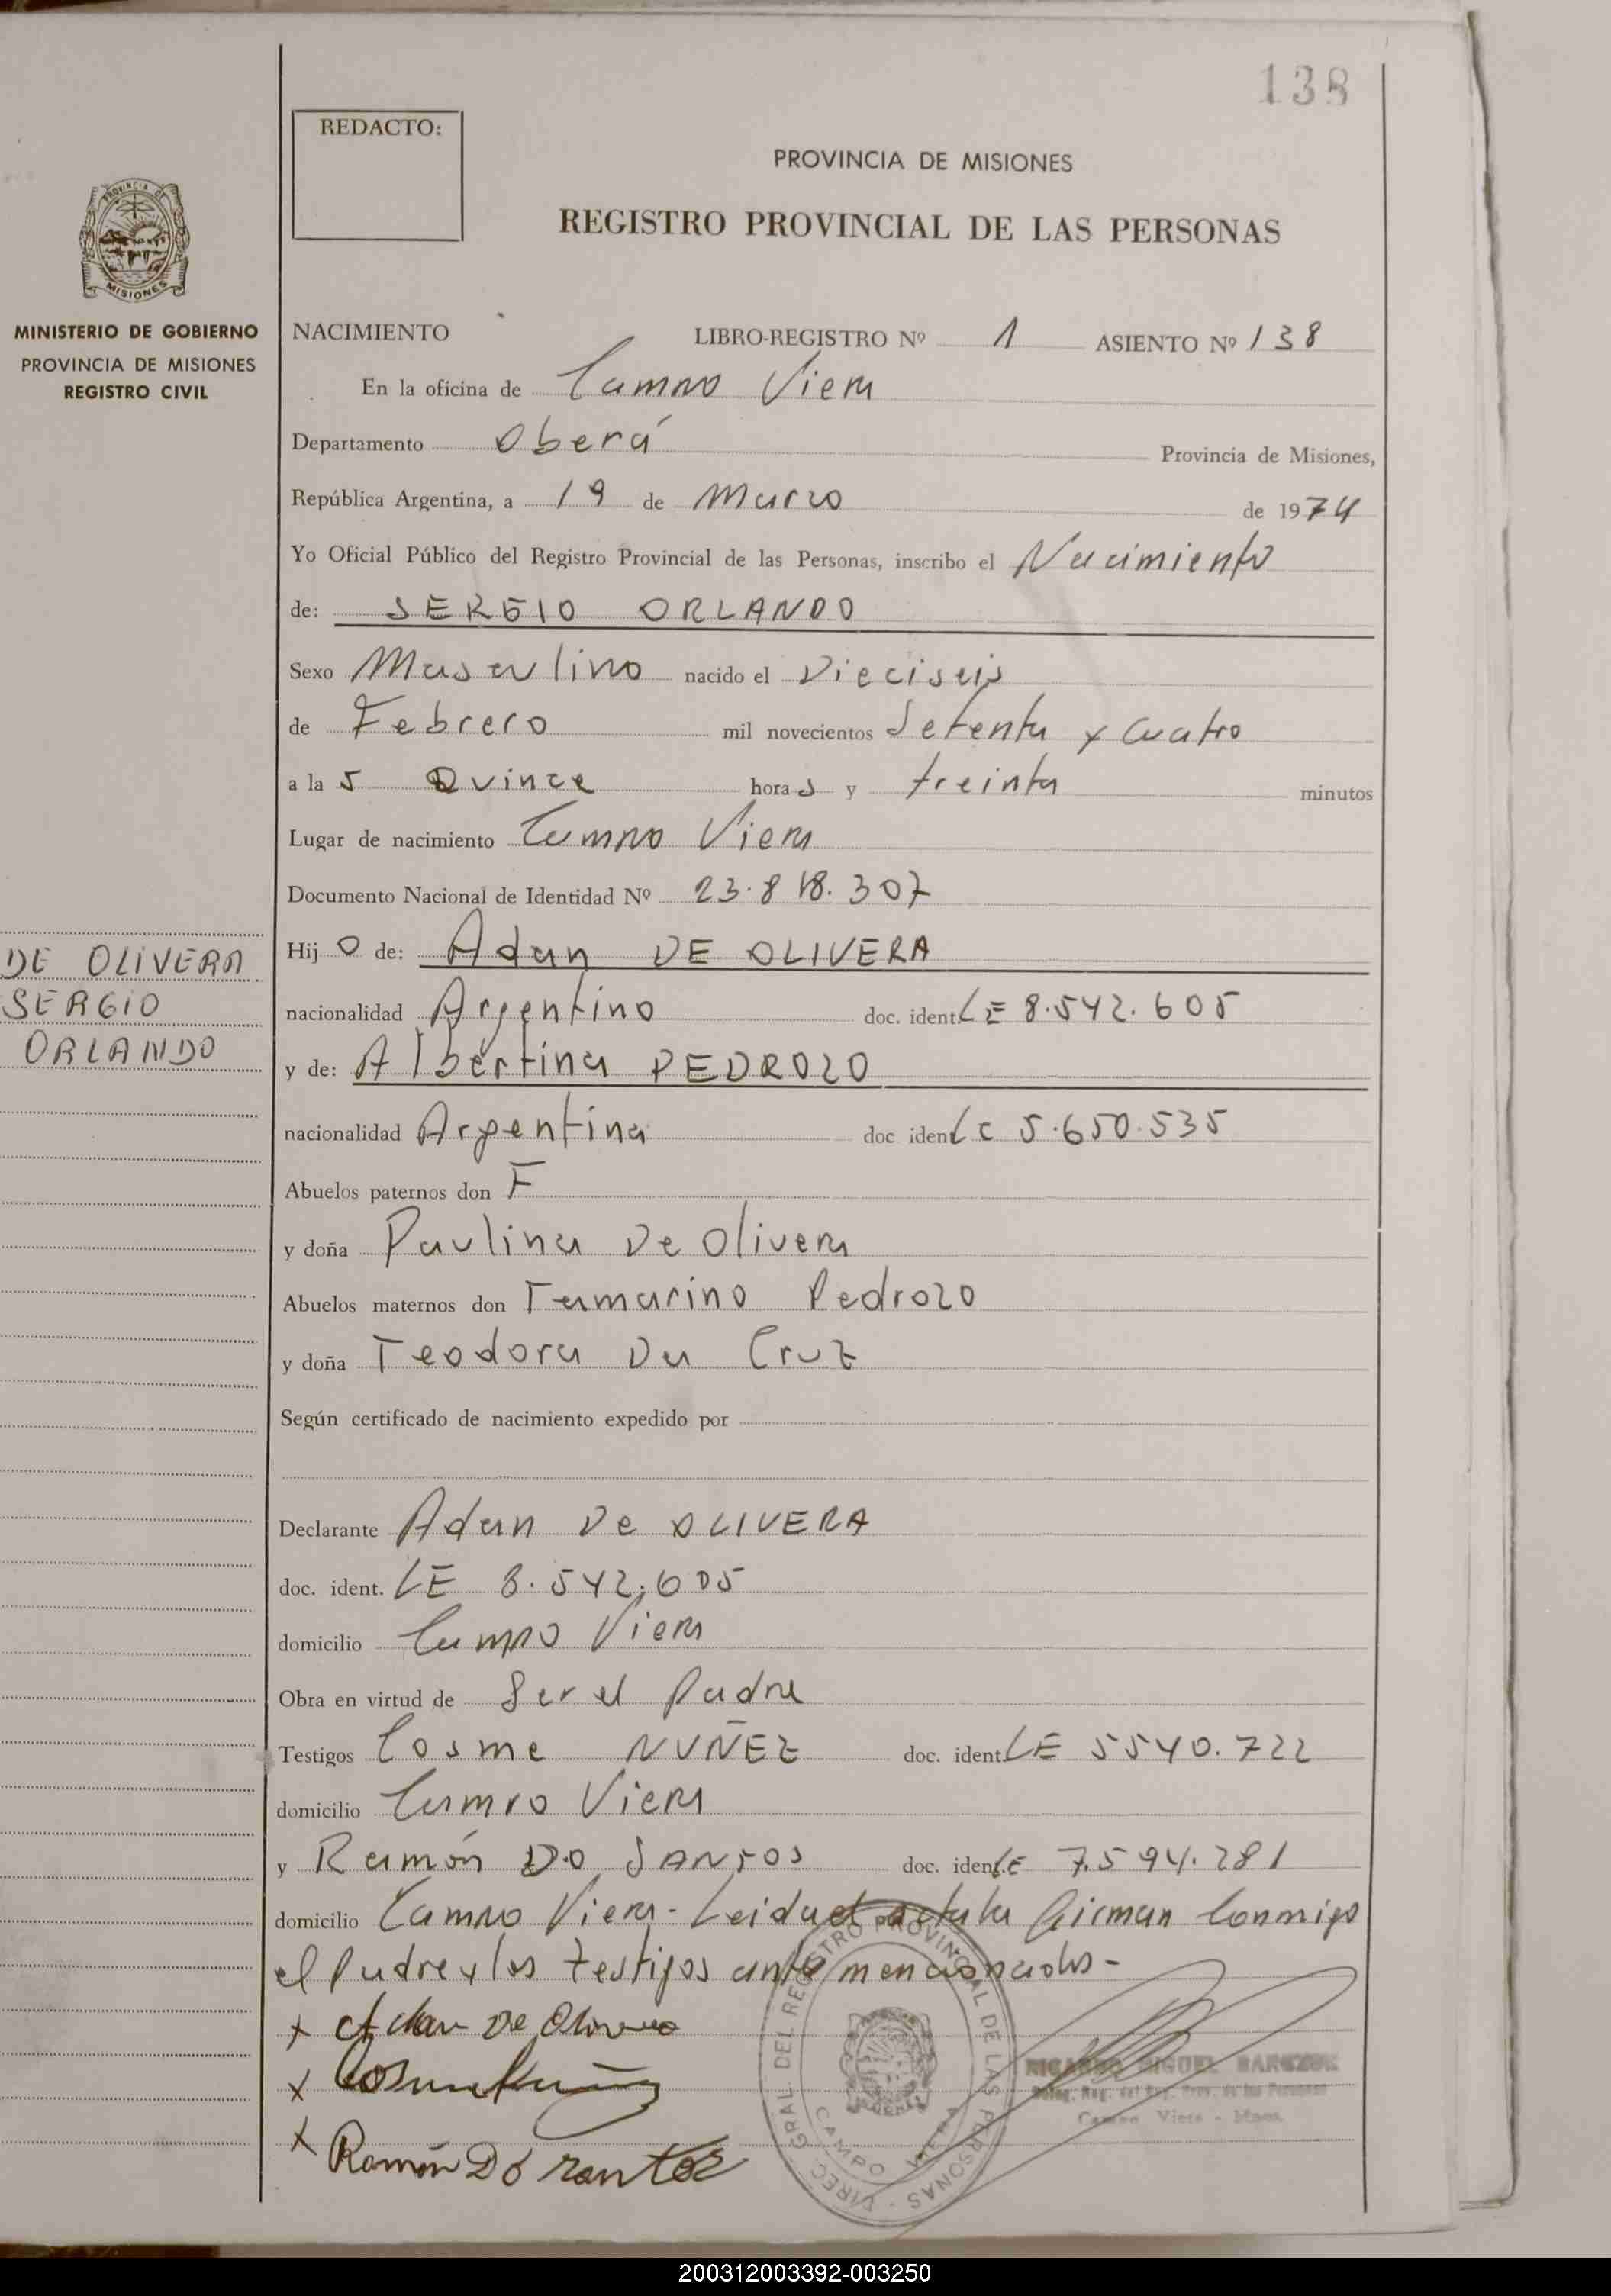 138
REDACTO:
PROVINCIA DE MISIONES
REGISTRO PROVINCIAL DE LAS PERSONAS
PROVINCIA DE
MISIONES
MINISTERIO DE GOBIERNO
PROVINCIA DE MISIONES
REGISTRO CIVIL
NACIMIENTO LIBRO-REGISTRO Nº 1 ASIENTO Nº 138
En la oficina de Campo Viera
Departamento Oberá Provincia de Misiones,
República Argentina, a 19 de Marzo de 1974
Yo Oficial Público del Registro Provincial de las Personas, inscribo el Nacimiento
de: SERGIO ORLANDO
Sexo Masculino nacido el Dieciseis
de Febrero mil novecientos Setenta y Cuatro
a la s Quince hora s y treinta minutos
Lugar de nacimiento Campo Viera
Documento Nacional de Identidad Nº 23.818.307
Hij o de: Adan DE OLIVERA
nacionalidad Argentino doc. ident. LE 8.542.605
y de: Albertina PEDROZO
nacionalidad Argentina doc ident LC 5.650.535
Abuelos paternos don F
y doña Paulina De Olivera
Abuelos maternos don Tamarino Pedrozo
y doña Teodora Da Cruz
Según certificado de nacimiento expedido por
Declarante Adan De OLIVERA
doc. ident. LE 8.542.605
domicilio Campo Viera
Obra en virtud de Ser el Padre
Testigos Cosme NUÑEZ doc. ident. LE 5540.722
domicilio Campo Viera
y Ramón DO SANTOS doc. ident. LE 7.594.281
domicilio Campo Viera - Leida el acta la firman Conmigo
el Padre y los testigos ante mencionados -
x Adan De Olivera
x
x Ramón Dó santos
DE OLIVERA
SERGIO
ORLANDO
DIREC. GRAL. DEL REGISTRO PROVINCIAL DE LAS PERSONAS
CAMPO VIERA
RICARDO MIGUEL
Deleg. Reg. del Reg. Prov. de las Personas
Campo Viera - Mnes.
200312003392-003250